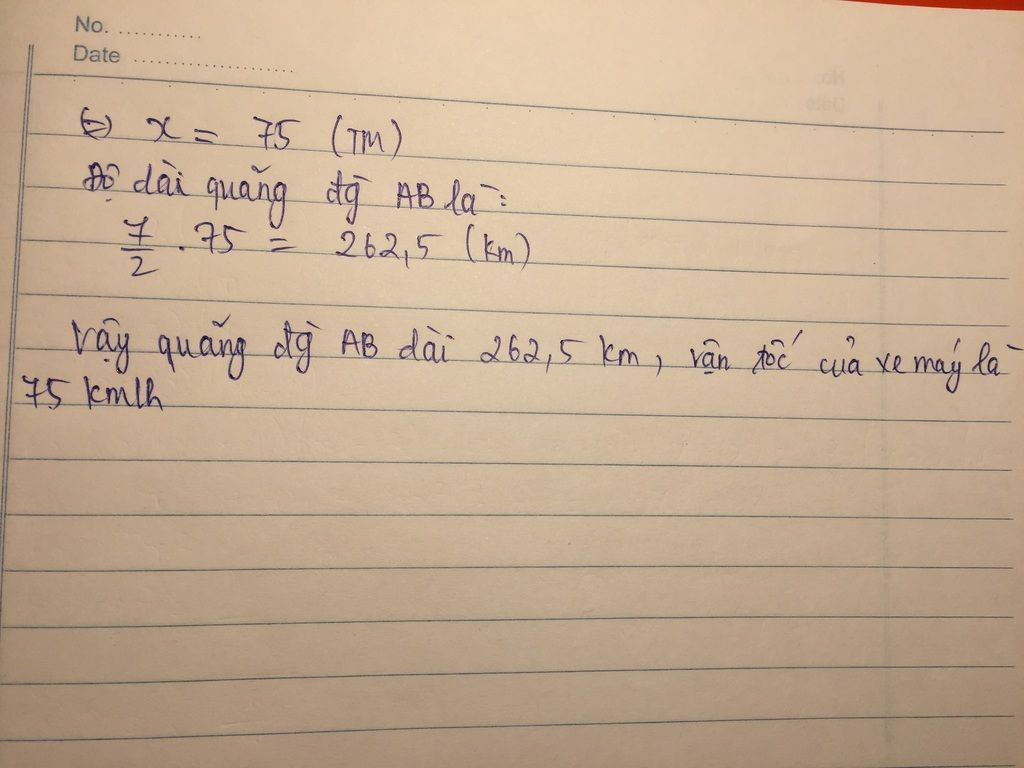 No. ...........
Date ......................
⇔ x = 75 (TM)
Độ dài quãng đg̀ AB là:
7/2 . 75 = 262,5 (km)
Vậy quãng đg̀ AB dài 262,5 km, vận tốc của xe máy là
75 km/h